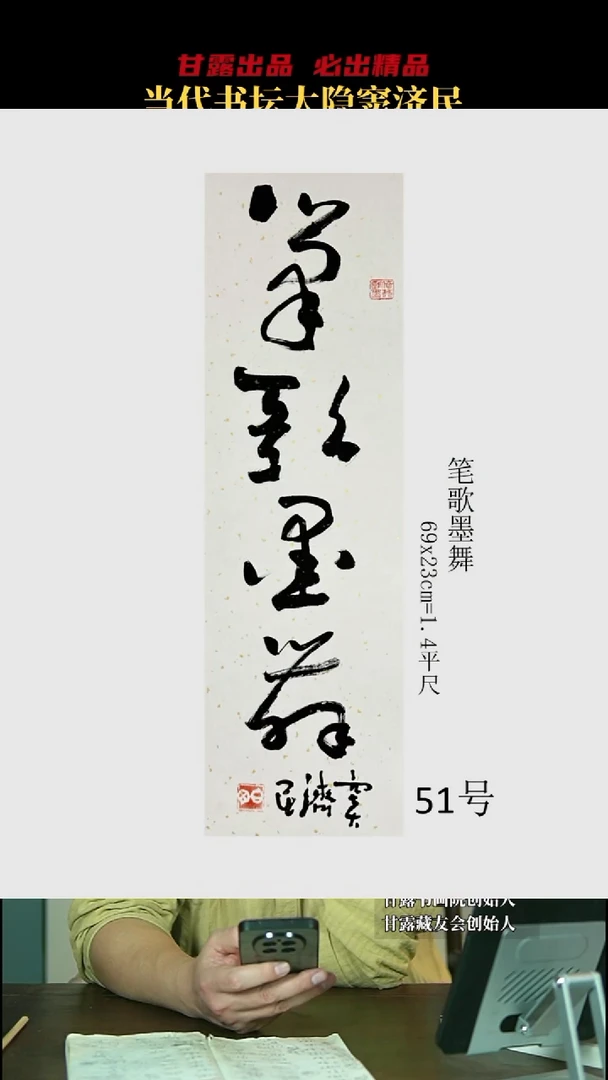 甘露出品 必出精品
当代书坛大隐窦济民
筆歌墨舞
窦濟民
笔歌墨舞
69x23cm=1.4平尺
51号
甘露书画院创始人
甘露藏友会创始人